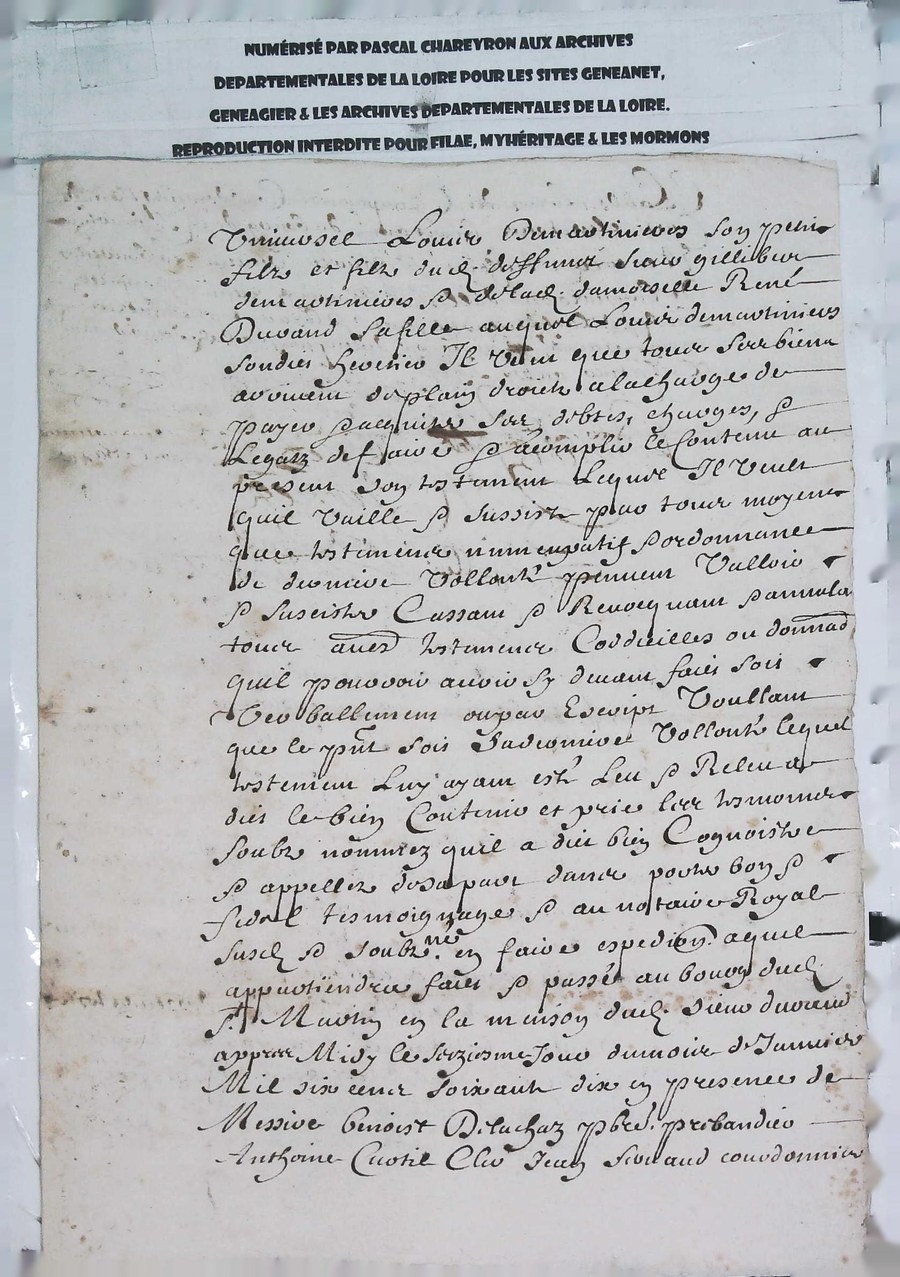 NUMÉRISÉ PAR PASCAL CHAREYRON AUX ARCHIVES
DEPARTEMENTALES DE LA LOIRE POUR LES SITES GENEANET,
GENEAGIER & LES ARCHIVES DEPARTEMENTALES DE LA LOIRE.
REPRODUCTION INTERDITE POUR FILAE, MYHÉRITAGE & LES MORMONS
Universel Louis Demartinieres son petit
filz et filz dud. deffunct sieur gillibert
demartinieres & delad. damoiselle René
Durand sa fille auquel Louis demartinieres
sondict heritier Il veut que tous ses biens
advienent de plain droict a la charge de
payer & acquiter ses debtes, charges, &
Legatz de faire & acomplir le Contenu au
present son testament Lequel Il Veult
quil Vaille & subsiste par tous moyens
que testaments nuncupatif & ordonnance
de derniere Vollonté peuvent Valloir
& subcister Cassant & Revocquant & annula
tous aues testaments Coddicilles ou donnaõ
quil pourroit avoir cy devant faict soit
Verballement ou par Escript Voullant
que le pñt soit sa derniere Vollonté lequel
testement Luy ayant esté Leu & Releu a
dict le bien Contenir et prie les tesmoins
soubz nommez quil a dict bien Cognoistre
& appellez de sa part dans porter bon &
fidel tesmoignage & au notaire Royal
susd. & soubz.né en faire expedion. aquel
appartiendra faict & passé au bourg dud.
St. Martin en la maison dud. sieur durand
appres Midy le seziesme Jour du mois de Janvier
Mil six cent soixante dix en presence de
Messire benoist Delachaz pbre. prebandier
Anthoine Crotil Cler Jean Giraud courdonnier